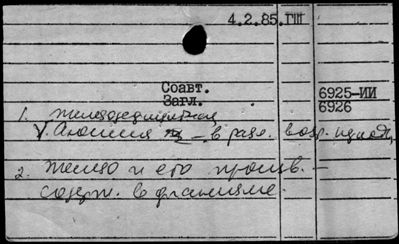 4.2.85.ГШ
Соавт.
Загл.
6925-ИИ
6926
1. Железодефицитная
анемия в разл. возр. период.
2. Железо и его произв. –
содерж. в